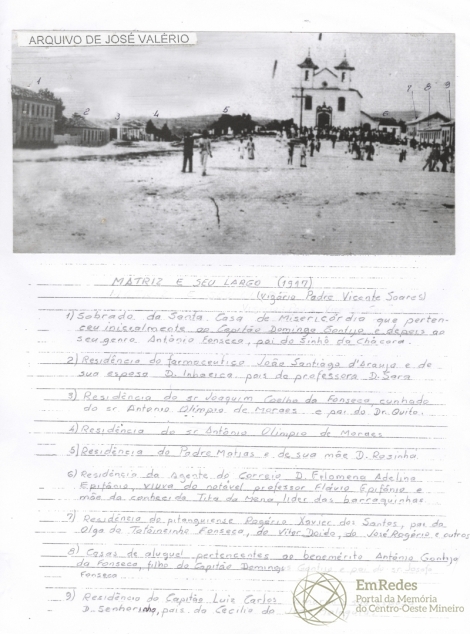 ARQUIVO DE JOSÉ VALÉRIO
1
2
3
4
5
6
7
8
9
MATRIZ E SEU LARGO (1917)
(vigário Padre Vicente Soares)
1) Sobrado da Santa Casa de Misericórdia que perten-
ceu inicialmente ao Capitão Domingo Gontijo e depois ao
seu genro Antônio Fonseca, pai do Sinhô da Chácara.
2) Residência do farmaceutico João Santiago d'Araujo e de
sua esposa D. pais da professora D. Sara
3) Residência do sr Joaquim Coelho da Fonseca, cunhado
do sr Antonio Olimpio de Moraes e pai do Dr. Quito.
4) Residência do sr Antônio Olimpio de Moraes
5) Residência do Padre Matias e de sua mãe D. Rosinha
6) Residência da Agente do Correio D. Felomena Adelina
Epifânio, viuva do notável professor Flávio Epifânio e
mãe da conhecida Tita da Mena, líder das barraquinhas
7) Residência do pitanguiense Rogério Xavier dos Santos, pai da
Olga do Totôneinho Fonseca, do Vitor Doido, do José Rogério e outros
8) Casas de aluguel pertencentes ao benemérito Antônio Gontijo
da Fonseca, filho do Capitão Domingos Gontijo e pai do sr
Fonseca
9) Residência do Capitão Luiz Carlos
D. Senhorinha, pais da Cecilia do
EmRedes
Portal da Memória
do Centro-Oeste Mineiro